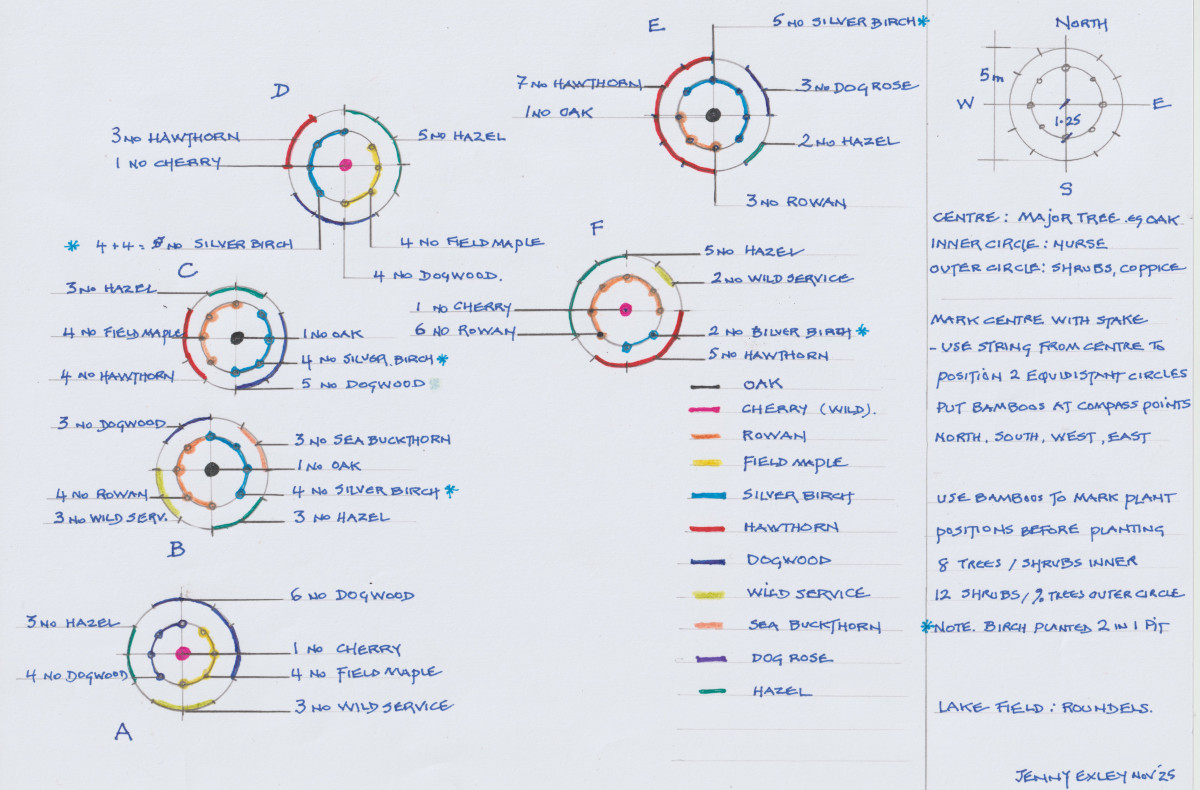 D
3 NO HAWTHORN
1 NO CHERRY
5 NO HAZEL
* 4+4 = 8 NO SILVER BIRCH
4 NO FIELD MAPLE
4 NO DOGWOOD.
E
5 NO SILVER BIRCH*
7 NO HAWTHORN
1 NO OAK
3 NO DOG ROSE
2 NO HAZEL
3 NO ROWAN
C
3 NO HAZEL
4 NO FIELD MAPLE
4 NO HAWTHORN
1 NO OAK
4 NO SILVER BIRCH*
5 NO DOGWOOD *
F
5 NO HAZEL
2 NO WILD SERVICE
1 NO CHERRY
6 NO ROWAN
2 NO BILVER BIRCH*
5 NO HAWTHORN
3 NO DOGWOOD
3 NO SEA BUCKTHORN
1 NO OAK
4 NO ROWAN
4 NO SILVER BIRCH*
3 NO WILD SERV.
3 NO HAZEL
B
6 NO DOGWOOD
3 NO HAZEL
1 NO CHERRY
4 NO DOGWOOD
4 NO FIELD MAPLE
3 NO WILD SERVICE
A
OAK
CHERRY (WILD).
ROWAN
FIELD MAPLE
SILVER BIRCH
HAWTHORN
DOGWOOD
WILD SERVICE
SEA BUCKTHORN
DOG ROSE
HAZEL
NORTH
5m
W
E
1.25
S
CENTRE: MAJOR TREE .eg OAK
INNER CIRCLE: NURSE
OUTER CIRCLE: SHRUBS, COPPICE
MARK CENTRE WITH STAKE
- USE STRING FROM CENTRE TO
POSITION 2 EQUIDISTANT CIRCLES
PUT BAMBOOS AT COMPASS POINTS
NORTH, SOUTH, WEST, EAST
USE BAMBOOS TO MARK PLANT
POSITIONS BEFORE PLANTING
8 TREES / SHRUBS INNER
12 SHRUBS / TREES OUTER CIRCLE
*NOTE. BIRCH PLANTED 2 IN 1 PIT
LAKE FIELD: ROUNDELS.
JENNY EXLEY NOV'25